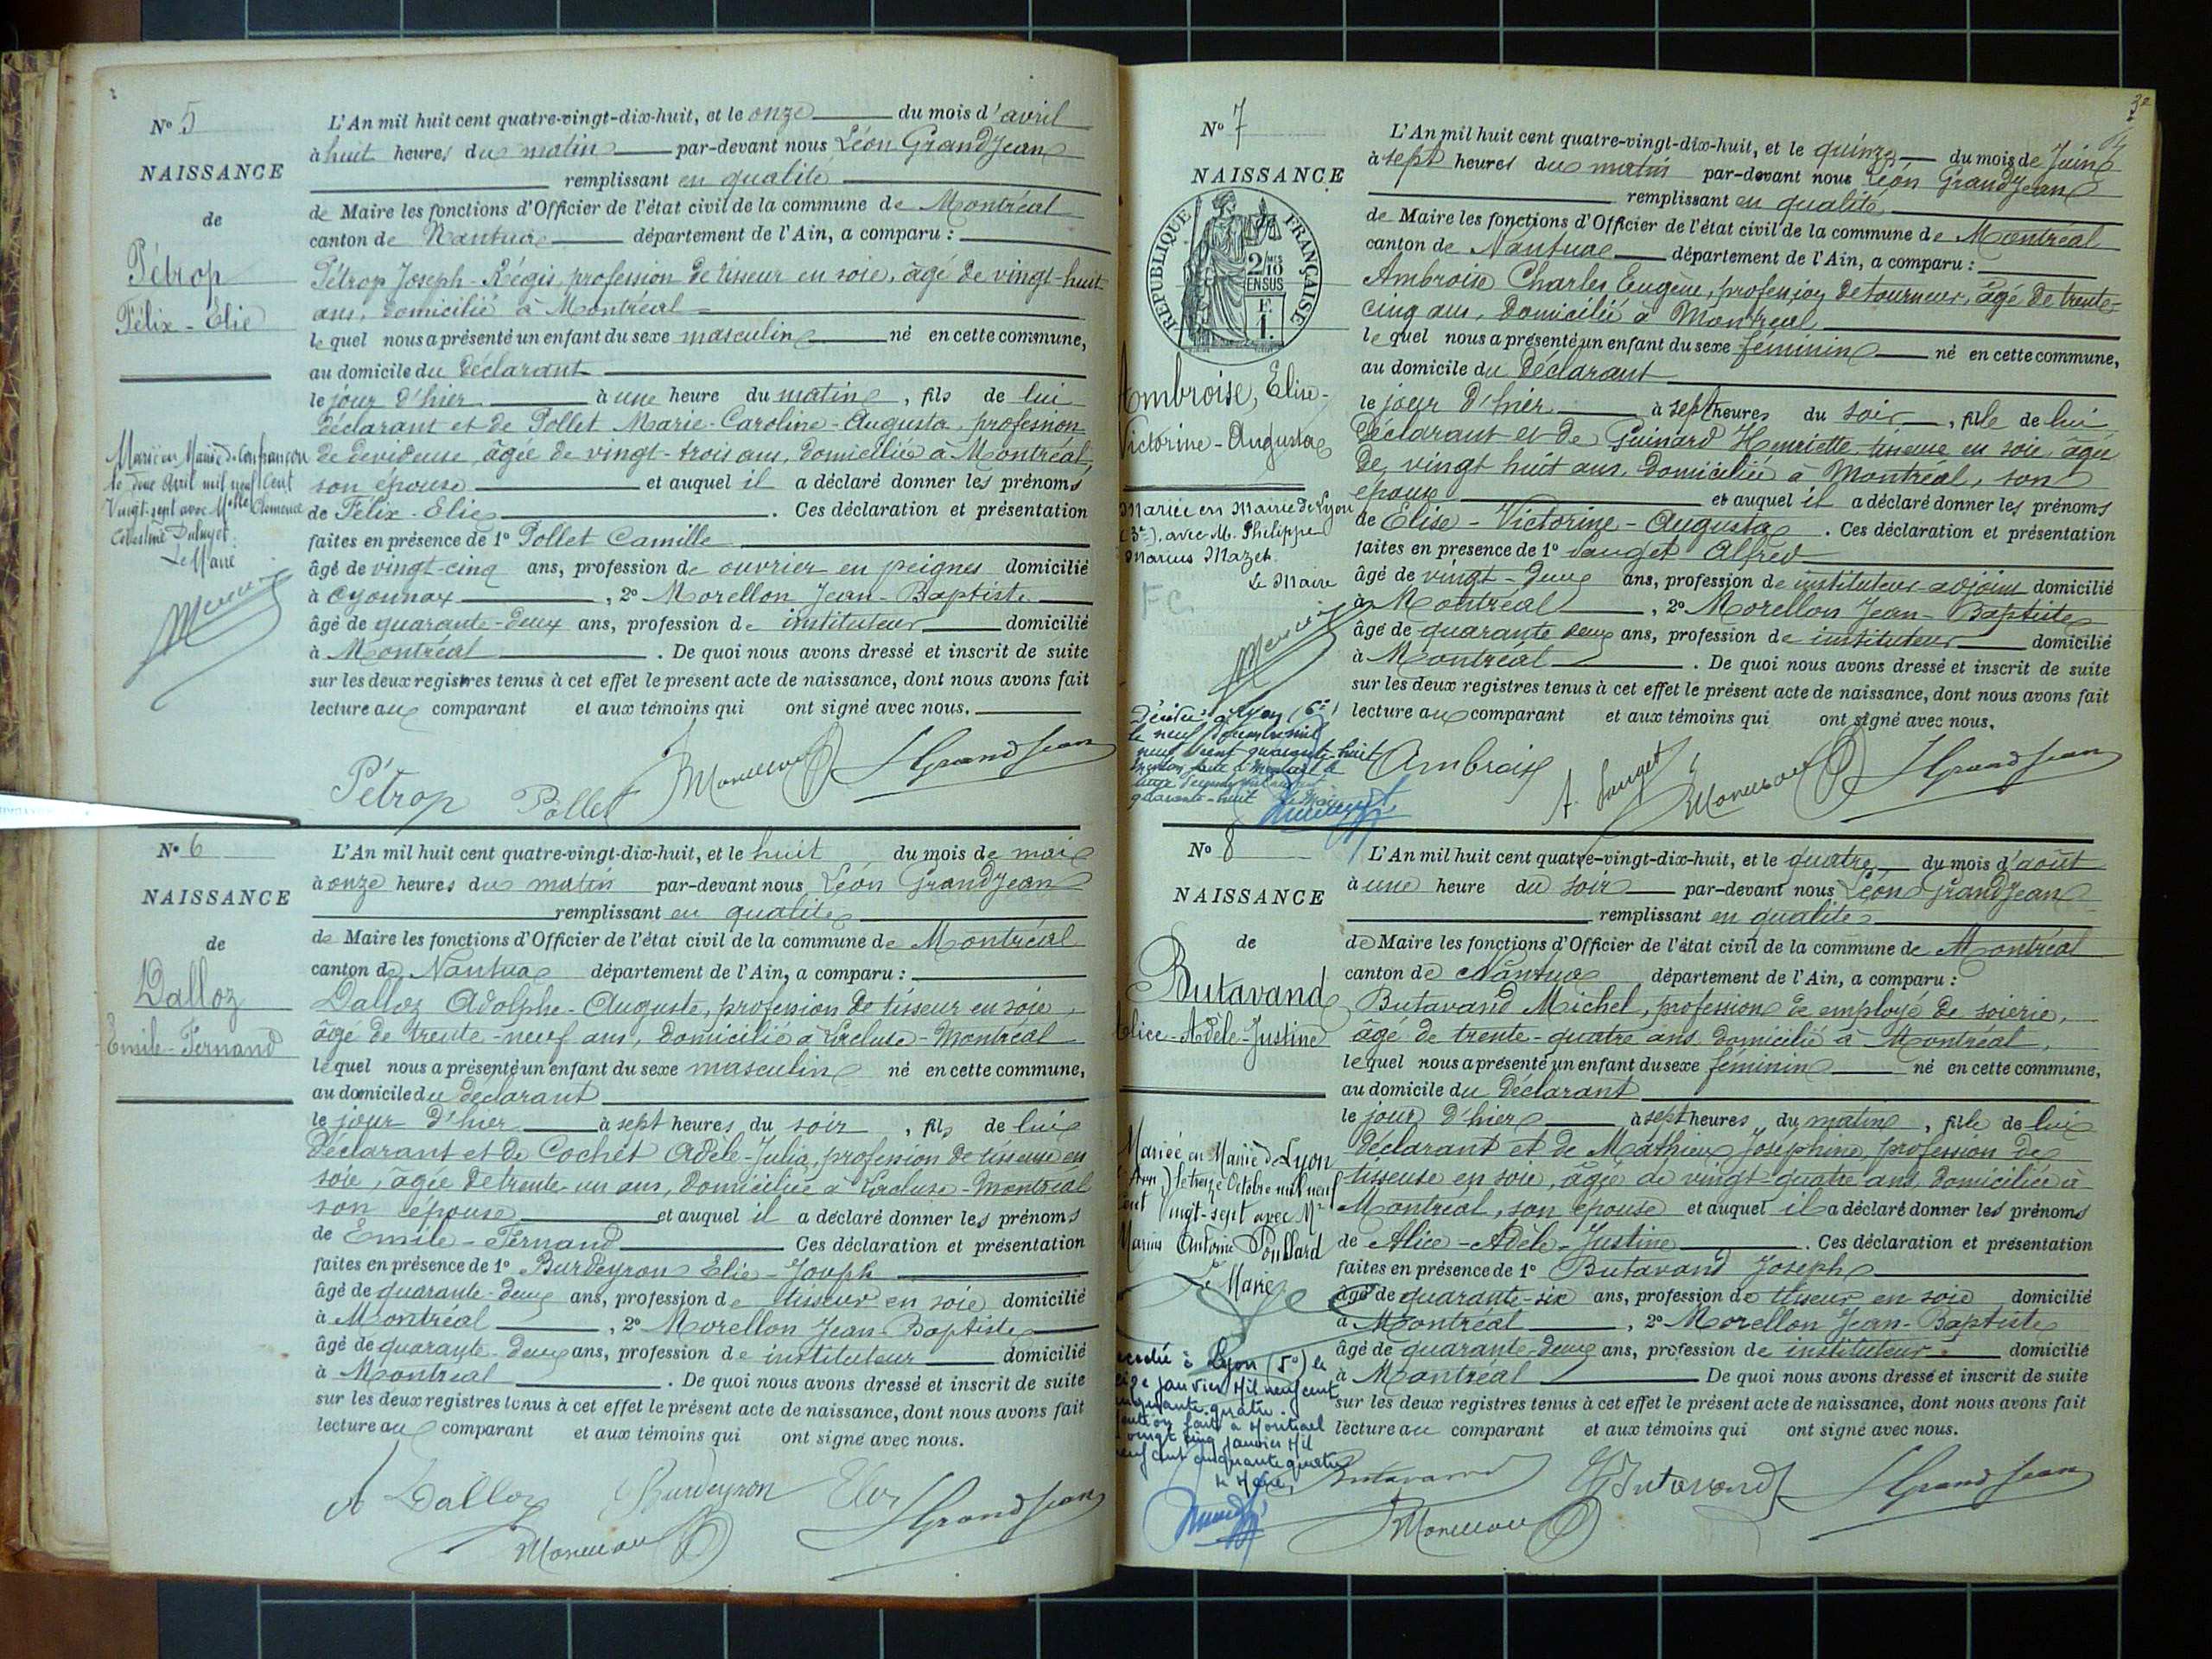 N° 5
NAISSANCE
de
Pétrop
Félix-Elie
Marié en Mairie de Confrançon
le deux avril mil neuf cent
Vingt-sept avec Melle Clémence
Célestine
Le Maire
L'An mil huit cent quatre-vingt-dix-huit, et le onze du mois d'avril
à huit heures du matin par-devant nous Léon GrandJean
remplissant en qualité
de Maire les fonctions d'Officier de l'état civil de la commune de Montréal
canton de Nantua département de l'Ain, a comparu :
Pétrop Joseph-Régis, profession de tisseur en soie, âgé de vingt-huit
ans, domicilié à Montréal
lequel nous a présenté un enfant du sexe masculin né en cette commune,
au domicile du déclarant
le jour d'hier à une heure du matin, fils de lui
déclarant et de Pollet Marie-Caroline-Augusta, profession
de dévideuse, âgée de vingt-trois ans, domiciliée à Montréal,
son épouse et auquel il a déclaré donner les prénoms
de Félix-Elie. Ces déclaration et présentation
faites en présence de 1° Pollet Camille
âgé de vingt-cinq ans, profession de ouvrier en peignes domicilié
à Oyonnax, 2° Morellon Jean-Baptiste
âgé de quarante-deux ans, profession de instituteur domicilié
à Montréal. De quoi nous avons dressé et inscrit de suite
sur les deux registres tenus à cet effet le présent acte de naissance, dont nous avons fait
lecture au comparant et aux témoins qui ont signé avec nous.
Pétrop Pollet Morellon L GrandJean
N° 6
NAISSANCE
de
Dalloz
Emile-Fernand
L'An mil huit cent quatre-vingt-dix-huit, et le huit du mois de mai
à onze heures du matin par-devant nous Léon GrandJean
remplissant en qualité
de Maire les fonctions d'Officier de l'état civil de la commune de Montréal
canton de Nantua département de l'Ain, a comparu :
Dalloz Adolphe-Auguste, profession de tisseur en soie,
âgé de trente-neuf ans, domicilié à l'Ecluse-Montréal
lequel nous a présenté un enfant du sexe masculin né en cette commune,
au domicile du déclarant
le jour d'hier à sept heures du soir, fils de lui
déclarant et de Cochet Adèle-Julia, profession de tisseuse en
soie, âgée de trente un ans, domiciliée à l'Ecluse-Montréal
son épouse et auquel il a déclaré donner les prénoms
de Emile-Fernand Ces déclaration et présentation
faites en présence de 1° Burdeyron Elie-Joseph
âgé de quarante-deux ans, profession de tisseur en soie domicilié
à Montréal, 2° Morellon Jean-Baptiste
âgé de quarante-deux ans, profession de instituteur domicilié
à Montréal. De quoi nous avons dressé et inscrit de suite
sur les deux registres tenus à cet effet le présent acte de naissance, dont nous avons fait
lecture au comparant et aux témoins qui ont signé avec nous.
A Dalloz Burdeyron Elie L GrandJean
Morellon
N° 7
NAISSANCE
REPUBLIQUE FRANÇAISE
2/10 MES
EN SUS
F.
1.
Ambroise, Elise-
Victorine-Augusta
Mariée en Mairie de Lyon
(3e), avec M. Philippe
Marius Mazet.
Le Maire
F C.
Décédée à Lyon (6e)
le neuf
neuf cent quarante-huit
quarante-huit
L'An mil huit cent quatre-vingt-dix-huit, et le quinze du mois de Juin
à sept heures du matin par-devant nous Léon GrandJean
remplissant en qualité
de Maire les fonctions d'Officier de l'état civil de la commune de Montréal
canton de Nantua département de l'Ain, a comparu :
Ambroise Charles Eugène, profession de tourneur, âgé de trente-
cinq ans, domicilié à Montréal
lequel nous a présenté un enfant du sexe féminin né en cette commune,
au domicile du déclarant
le jour d'hier à sept heures du soir, fille de lui
déclarant et de Guinard Henriette, tisseuse en soie, âgée
de vingt huit ans, domiciliée à Montréal, son
épouse et auquel il a déclaré donner les prénoms
de Elise-Victorine-Augusta. Ces déclaration et présentation
faites en présence de 1° Alfred
âgé de vingt-deux ans, profession de instituteur adjoint domicilié
à Montréal, 2° Morellon Jean-Baptiste
âgé de quarante deux ans, profession de instituteur domicilié
à Montréal. De quoi nous avons dressé et inscrit de suite
sur les deux registres tenus à cet effet le présent acte de naissance, dont nous avons fait
lecture au comparant et aux témoins qui ont signé avec nous.
Ambroise A. Morellon L GrandJean
N° 8
NAISSANCE
de
Butavand
Alice-Adèle-Justine
Mariée en Mairie de Lyon
le treize Octobre mil neuf
cent Vingt-sept avec Mr
Marius Antoine Poullard
Le Maire
Lyon (5e) le
janvier Mil neuf cent
cinquante quatre.
Mention faite à Montréal
vingt cinq janvier Mil
neuf cent cinquante quatre
Le Maire,
L'An mil huit cent quatre-vingt-dix-huit, et le quatre du mois d'août
à une heure du soir par-devant nous Léon GrandJean
remplissant en qualité
de Maire les fonctions d'Officier de l'état civil de la commune de Montréal
canton de Nantua département de l'Ain, a comparu :
Butavand Michel, profession de employé de soierie,
âgé de trente-quatre ans, domicilié à Montréal,
lequel nous a présenté un enfant du sexe féminin né en cette commune,
au domicile du déclarant
le jour d'hier à sept heures du matin, fille de lui
déclarant et de Mathieu Joséphine, profession de
tisseuse en soie, âgée de vingt-quatre ans, domiciliée à
Montréal, son épouse et auquel il a déclaré donner les prénoms
de Alice-Adèle-Justine. Ces déclaration et présentation
faites en présence de 1° Butavand Joseph
âgé de quarante-six ans, profession de tisseur en soie domicilié
à Montréal, 2° Morellon Jean-Baptiste
âgé de quarante-deux ans, profession de instituteur domicilié
à Montréal De quoi nous avons dressé et inscrit de suite
sur les deux registres tenus à cet effet le présent acte de naissance, dont nous avons fait
lecture au comparant et aux témoins qui ont signé avec nous.
Butavand Butavand L GrandJean
Morellon